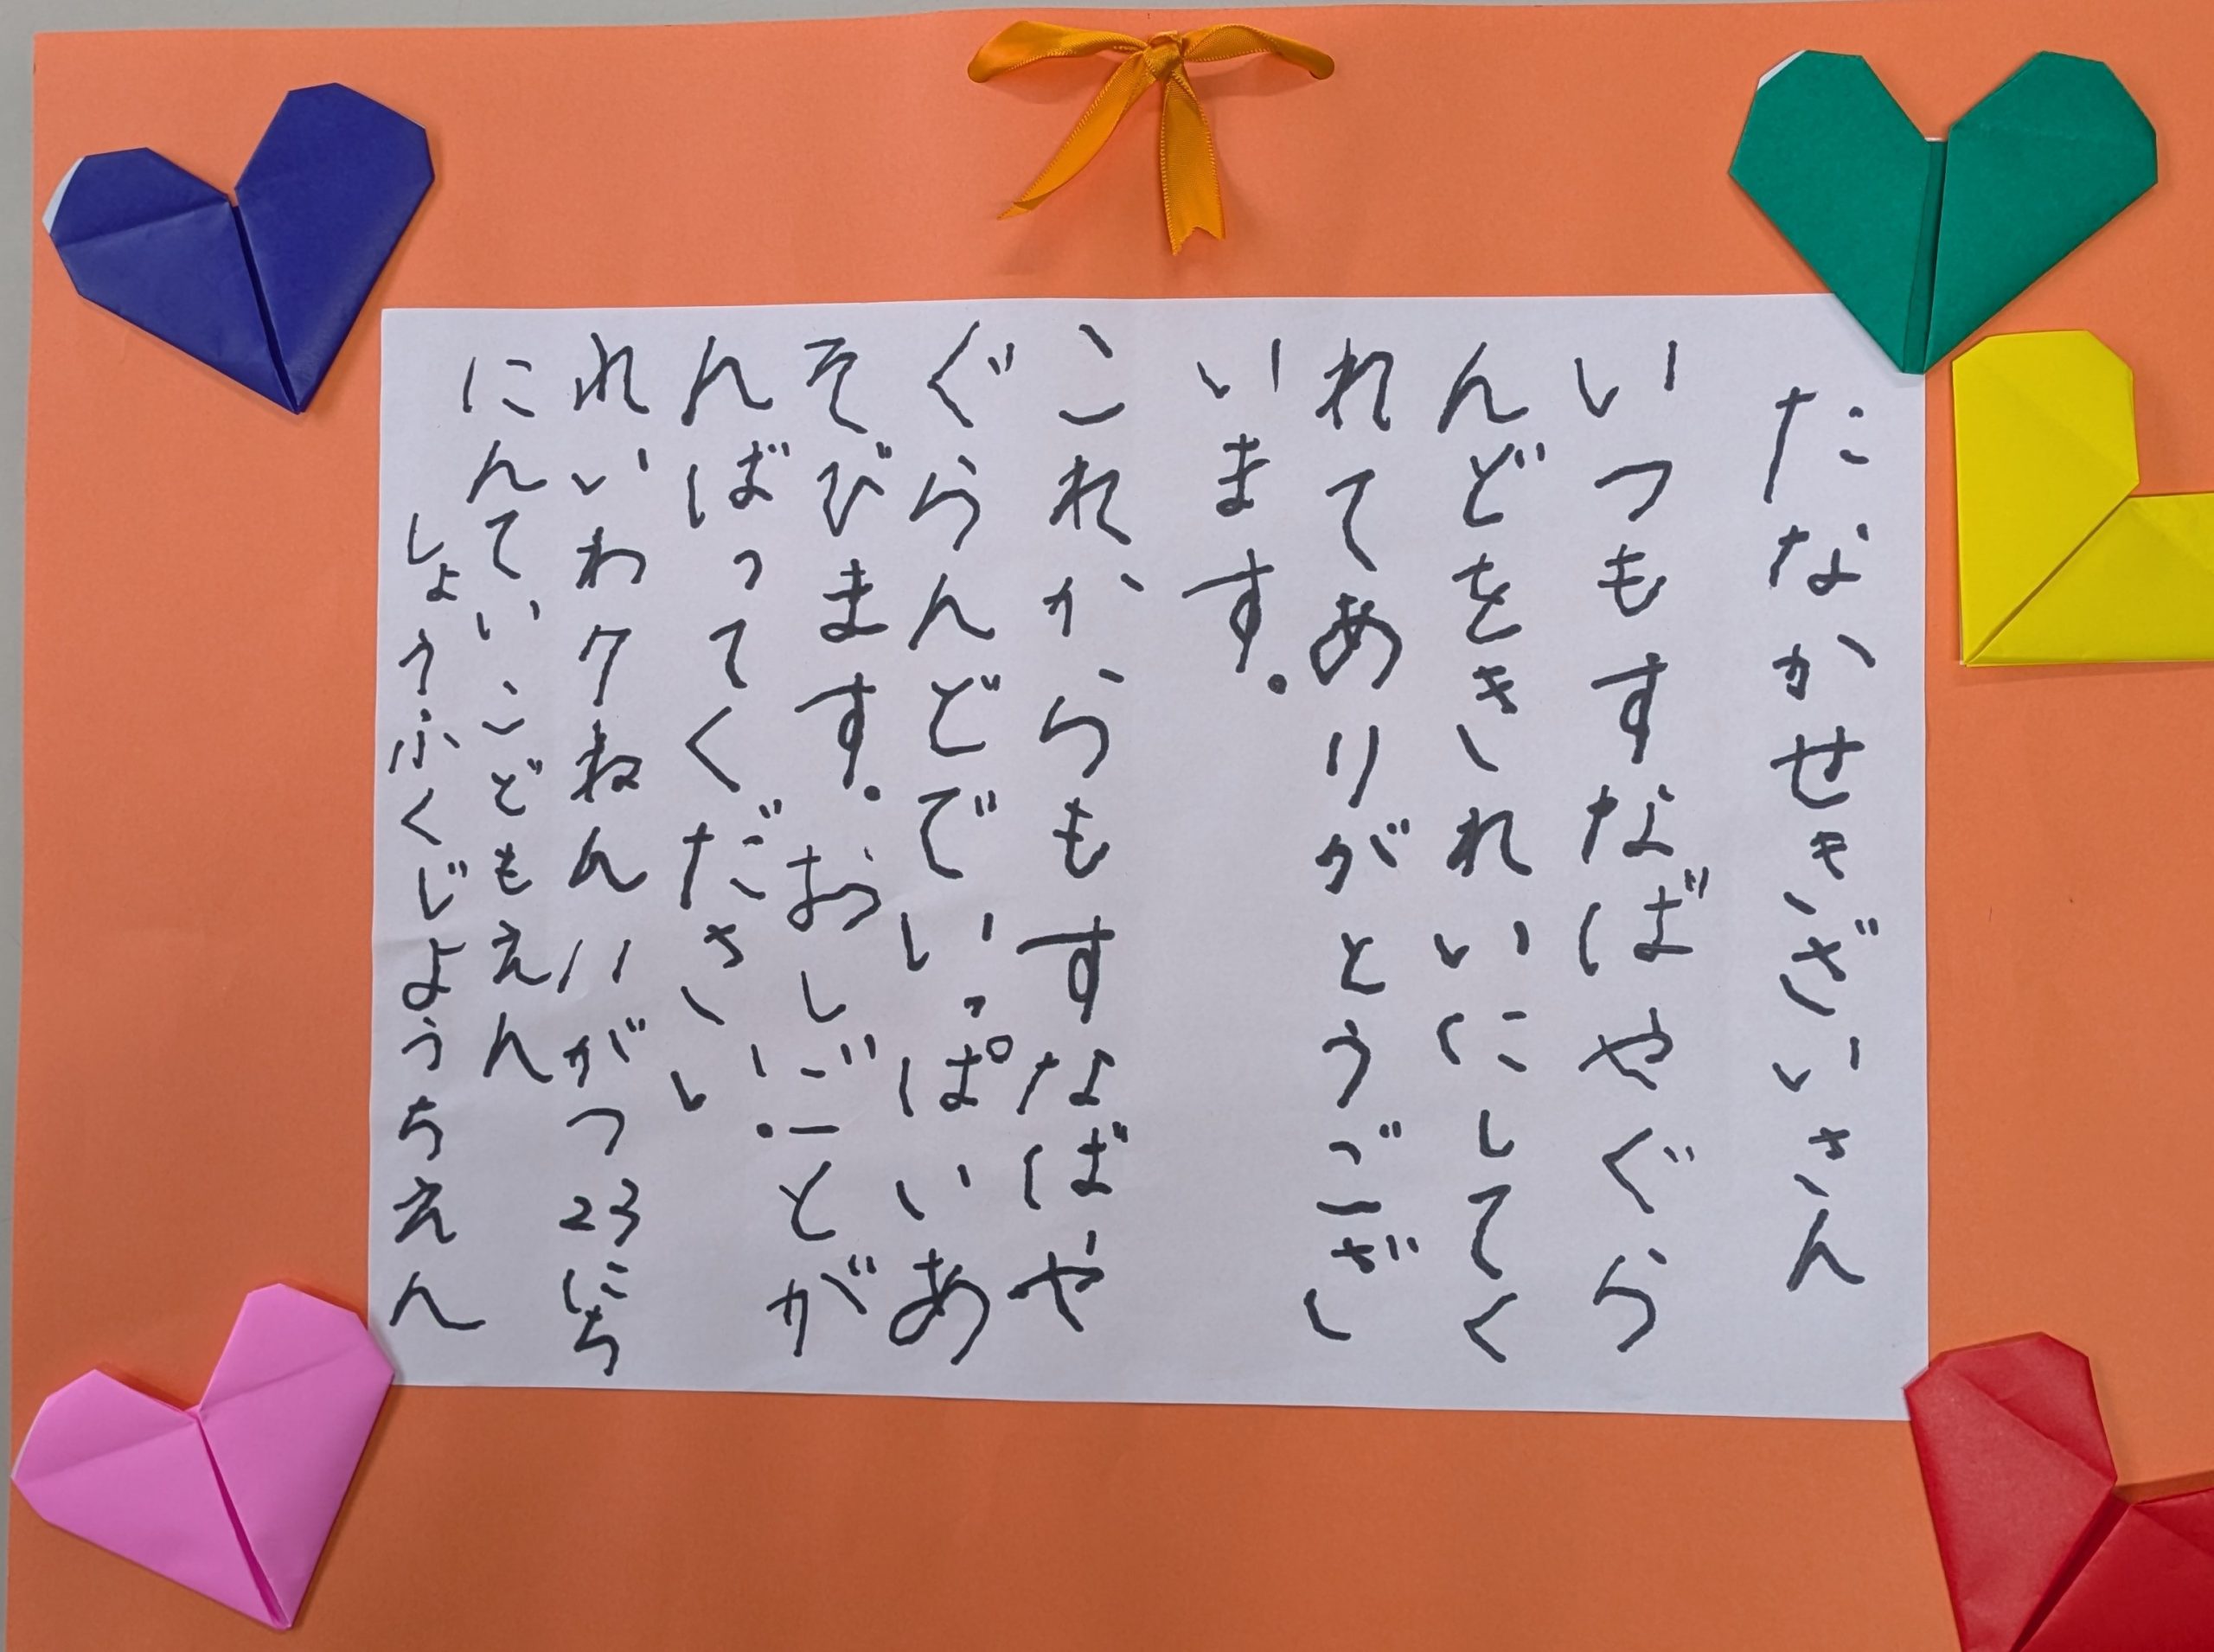 たなかせきざいさん
いつもすなばやぐら
んどをきれいにしてく
れてありがとうござ
います。
これからもすなばや
ぐらんどでいっぱいあ
そびます。おしごとが
んばってください。
れいわ7ねん11がつ23にち
にんていこどもえん
しょうふくじようちえん